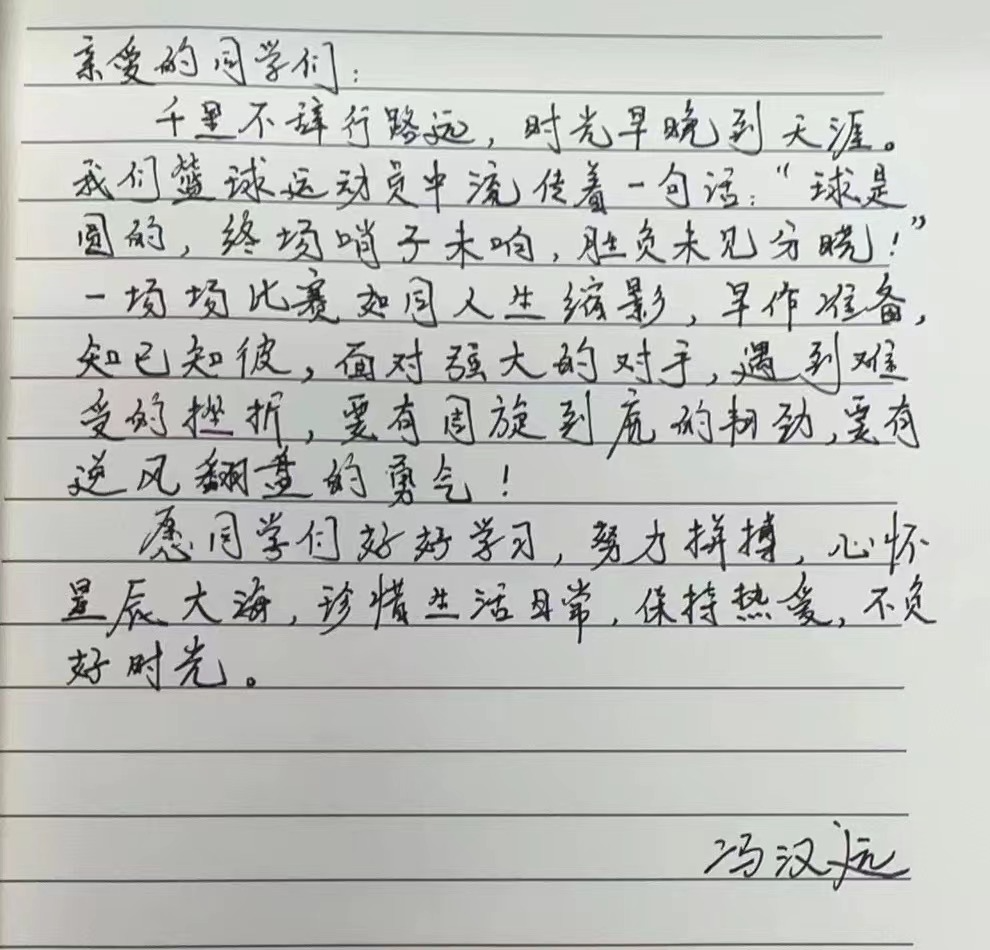 亲爱的同学们：
千里不辞行路远，时光早晚到天涯。
我们篮球运动员中流传着一句话：“球是
圆的，终场哨子未响，胜负未见分晓！”
一场场比赛如同人生缩影，早作准备，
知己知彼，面对强大的对手，遇到难
受的挫折，要有周旋到底的韧劲，要有
逆风翻盘的勇气！
愿同学们好好学习，努力拼搏，心怀
星辰大海，珍惜生活日常，保持热爱，不负
好时光。
冯汉远